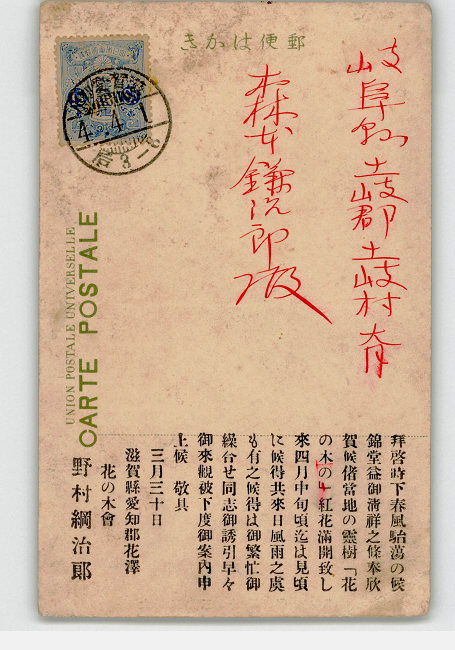 郵便はかき
岐阜縣土岐郡土岐村
森本鎌次郎殿
拜啓時下春風駘蕩の候
錦堂益御淸祥之條奉欣
賀候偖當地の靈樹「花
の木の」紅花滿開致し
來四月中旬頃迄は見頃
に候得共來日風雨之虞
も有之候得は御繁忙御
繰合せ同志御誘引早々
御來觀被下度御案內申
上候 敬具
三月三十日
滋賀縣愛知郡花澤
花の木會
野村綱治郎
UNION POSTALE UNIVERSELLE
CARTE POSTALE
4.4.1
后3-8